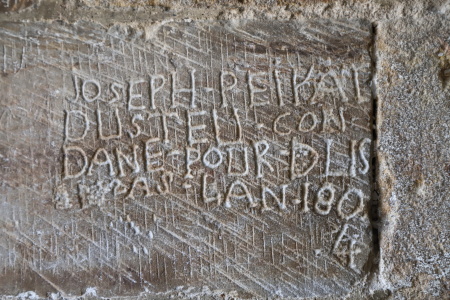 JOSEPH·PEIKAL
DUSTELI·CON
DANE·POUR·DLIS
PAS·LAN·180
4